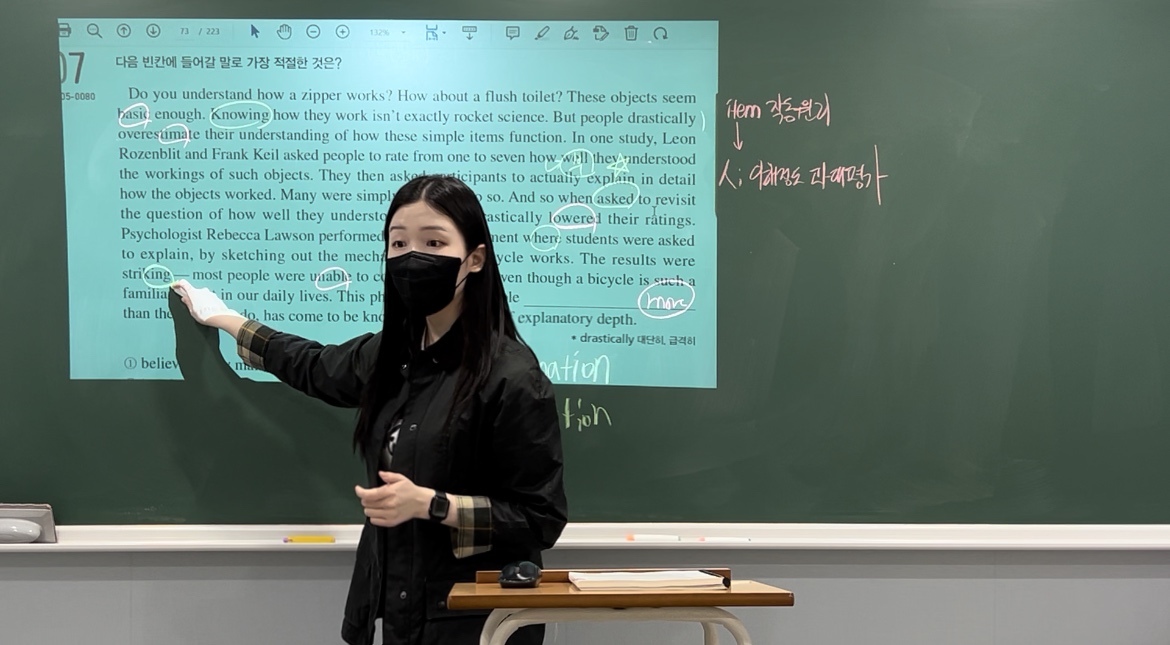 73 / 223
132%
07
05-0080
다음 빈칸에 들어갈 말로 가장 적절한 것은?
Do you understand how a zipper works? How about a flush toilet? These objects seem
basic enough. Knowing how they work isn't exactly rocket science. But people drastically
overestimate their understanding of how these simple items function. In one study, Leon
Rozenblit and Frank Keil asked people to rate from one to seven how well they understood
the workings of such objects. They then asked participants to actually explain in detail
how the objects worked. Many were simply so. And so when asked to revisit
the question of how well they understo astically lowered their ratings.
Psychologist Rebecca Lawson performed nent where students were asked
to explain, by sketching out the mech ycle works. The results were
striking — most people were unable to co ven though a bicycle is such a
familia in our daily lives. This ph le
more
than the do, has come to be kno f explanatory depth.
* drastically 대단히, 급격히
① believ
ation
tion
item 작동원리
↓
人; 이해정도 과대평가